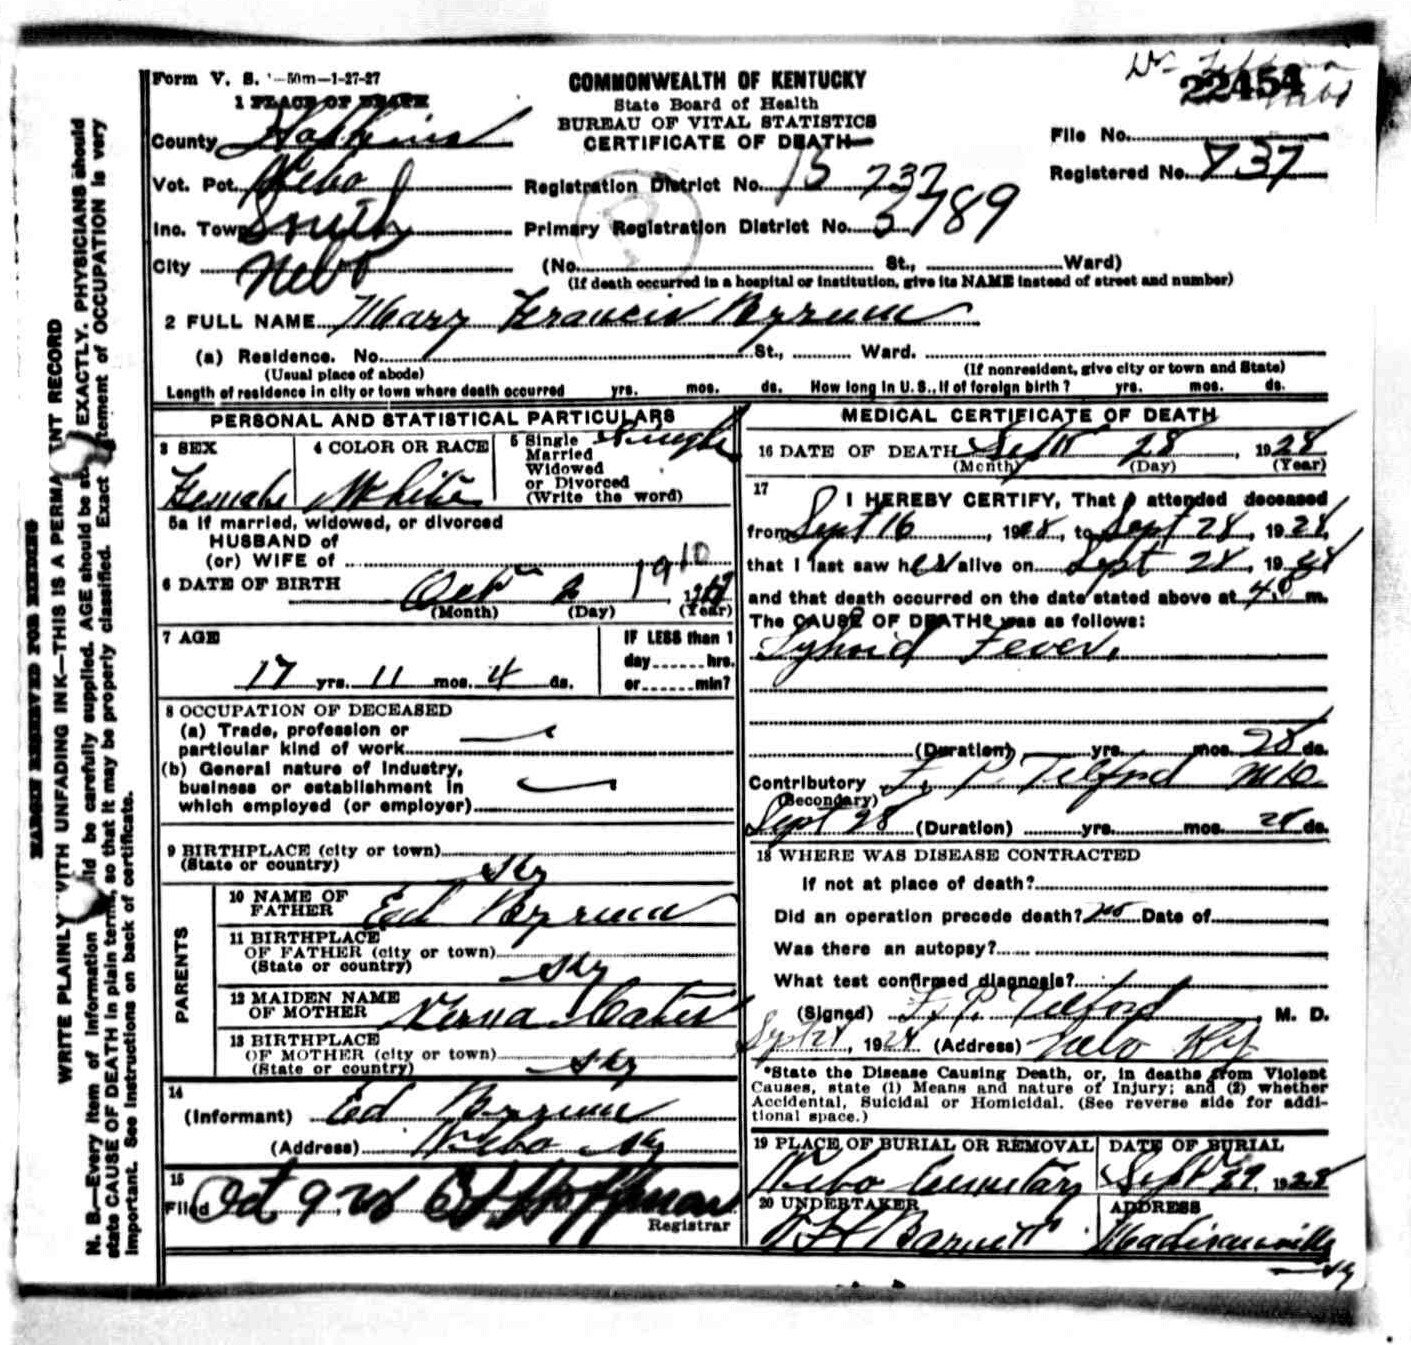 Form V. S. -50m-1-27-27
COMMONWEALTH OF KENTUCKY
State Board of Health
BUREAU OF VITAL STATISTICS
CERTIFICATE OF DEATH
22454
File No.
Registered No. 737
1 PLACE OF DEATH
County Hopkins
Vot. Pct. Nebo
Registration District No. 15 737
Inc. Town South
Primary Registration District No. 3789
City Nebo
(No. St., Ward)
(If death occurred in a hospital or institution, give its NAME instead of street and number)
2 FULL NAME Mary Francis Byrum
(a) Residence. No. St., Ward.
(Usual place of abode) (If nonresident, give city or town and State)
Length of residence in city or town where death occurred yrs. mos. ds. How long in U. S., if of foreign birth? yrs. mos. ds.
PERSONAL AND STATISTICAL PARTICULARS
3 SEX
Female
4 COLOR OR RACE
White
5 Single Single
Married
Widowed
or Divorced
(Write the word)
5a If married, widowed, or divorced
HUSBAND of
(or) WIFE of
6 DATE OF BIRTH Oct 2 1910
(Month) (Day) (Year)
7 AGE
17 yrs. 11 mos. 4 ds.
IF LESS than 1
day hrs.
or min?
8 OCCUPATION OF DECEASED
(a) Trade, profession or
particular kind of work
(b) General nature of industry,
business or establishment in
which employed (or employer)
9 BIRTHPLACE (city or town)
(State or country) Ky
PARENTS
10 NAME OF
FATHER Ed Byrum
11 BIRTHPLACE
OF FATHER (city or town)
(State or country) Ky
12 MAIDEN NAME
OF MOTHER Verna Cates
13 BIRTHPLACE
OF MOTHER (city or town)
(State or country) Ky
14
(Informant) Ed Byrum
(Address) Nebo Ky
15
Filed Oct 9, 28 Hoffman
Registrar
MEDICAL CERTIFICATE OF DEATH
16 DATE OF DEATH Sept 28, 1928
(Month) (Day) (Year)
17
I HEREBY CERTIFY, That I attended deceased
from Sept 16, 1928, to Sept 28, 1928,
that I last saw her alive on Sept 28, 1928
and that death occurred on the date stated above at m.
The CAUSE OF DEATH* was as follows:
Typhoid Fever.
(Duration) yrs. mos. 28 ds.
Contributory F. P. Telford M D
(Secondary)
Sept 28 (Duration) yrs. mos. 28 ds.
18 WHERE WAS DISEASE CONTRACTED
If not at place of death?
Did an operation precede death? no Date of
Was there an autopsy?
What test confirmed diagnosis?
(Signed) F. P. Telford, M. D.
Sept 28, 1928 (Address) Nebo Ky
*State the Disease Causing Death, or, in deaths from Violent
Causes, state (1) Means and nature of Injury; and (2) whether
Accidental, Suicidal or Homicidal. (See reverse side for addi-
tional space.)
19 PLACE OF BURIAL OR REMOVAL
Nebo Cemetary
DATE OF BURIAL
Sept 29, 1928
20 UNDERTAKER
Barnett
ADDRESS
Madisonville
Ky
MARGIN RESERVED FOR BINDING
WRITE PLAINLY WITH UNFADING INK—THIS IS A PERMANENT RECORD
N. B.—Every item of information should be carefully supplied. AGE should be stated EXACTLY. PHYSICIANS should
state CAUSE OF DEATH in plain terms, so that it may be properly classified. Exact statement of OCCUPATION is very
important. See instructions on back of certificate.